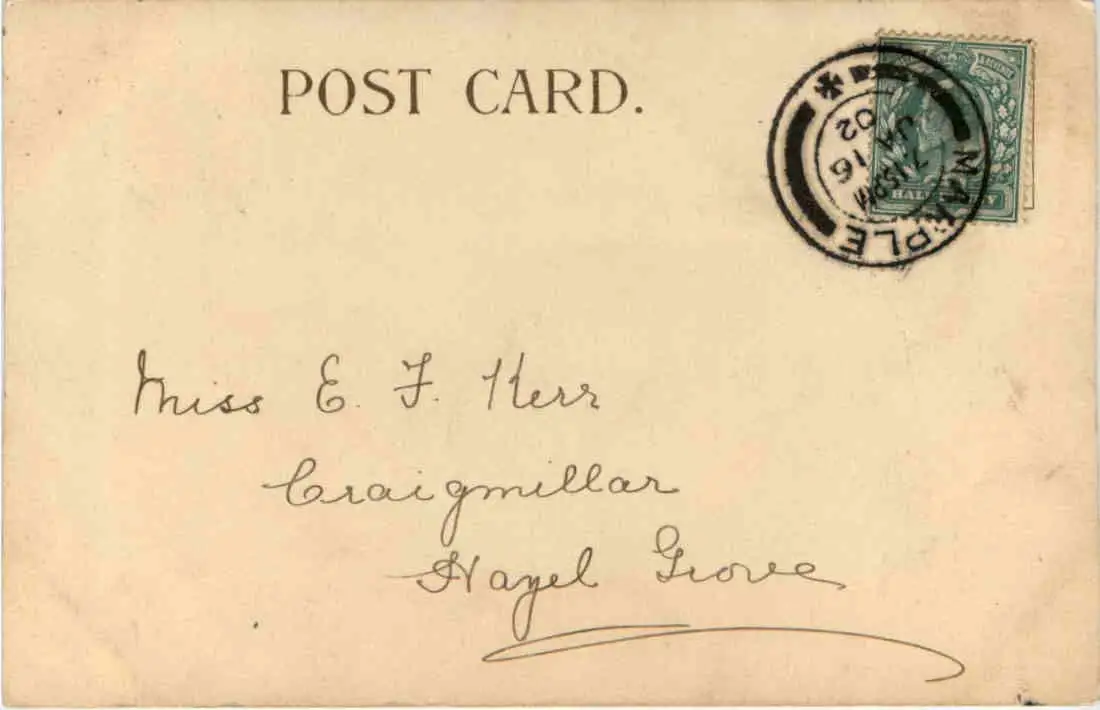 POST CARD.
& REVENUE
HALF
MARPLE
7.15PM
JA 16
02
Miss E. F. Kerr
Craigmillar
Hazel Grove